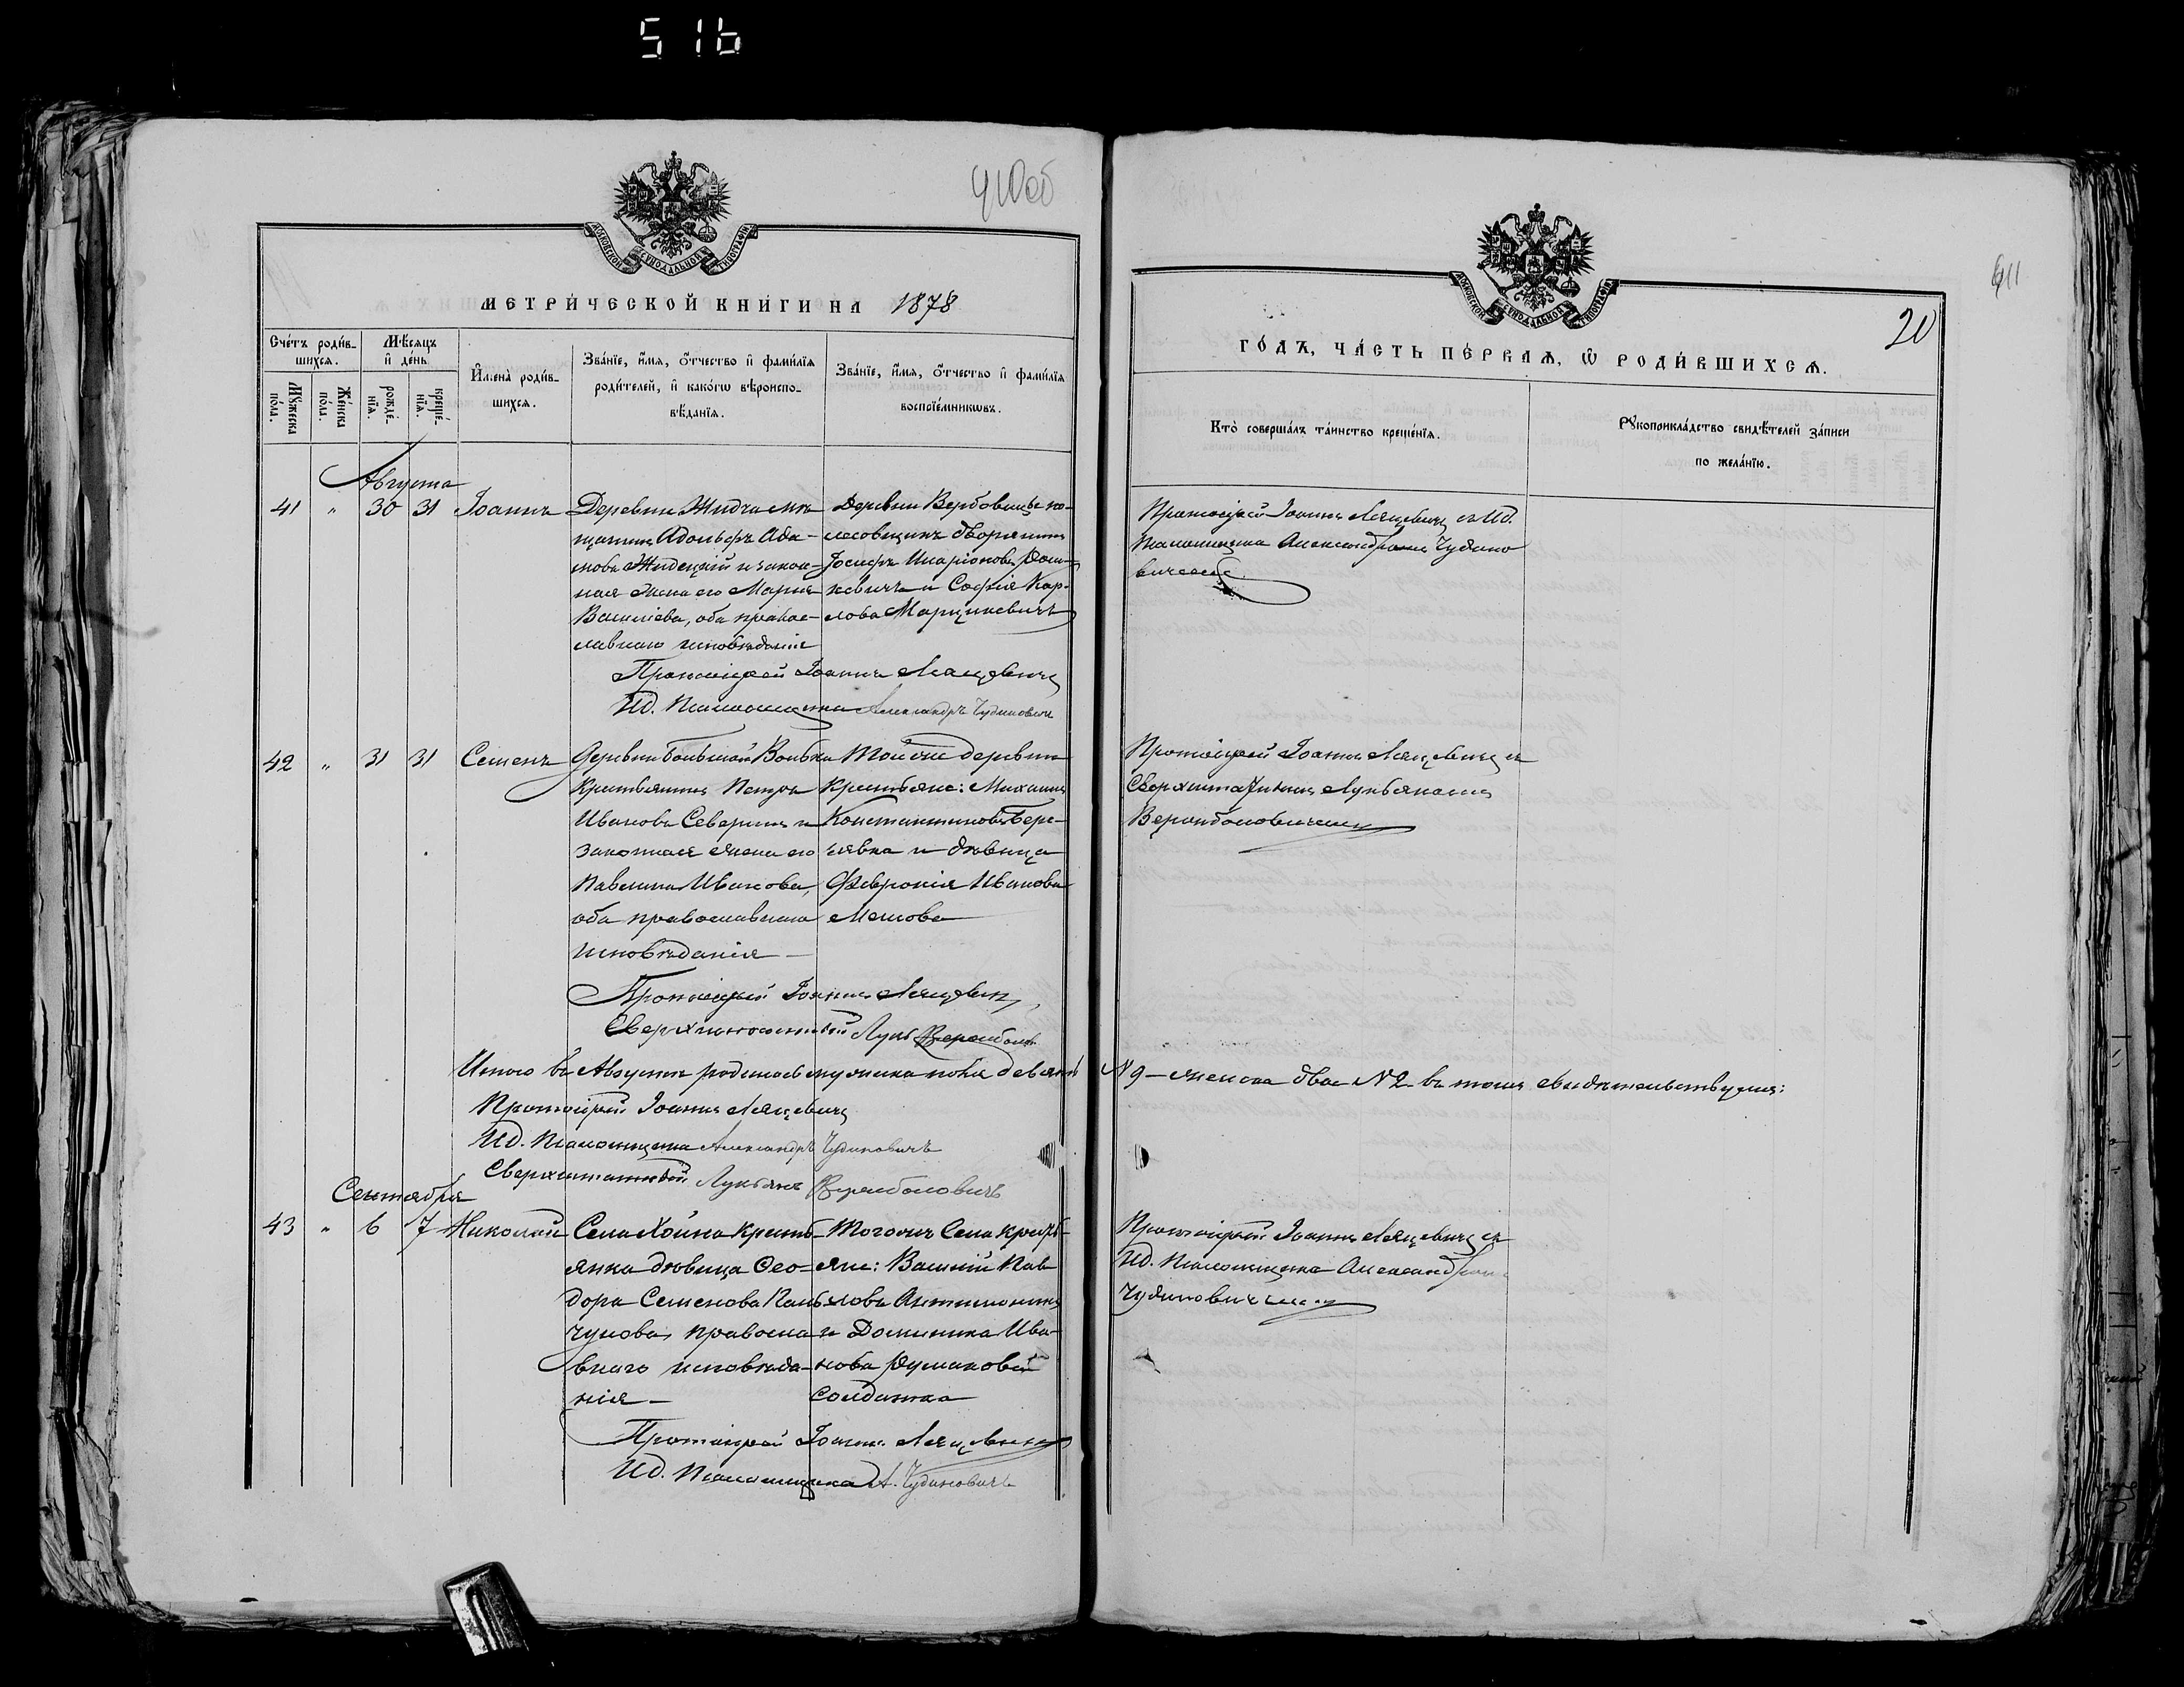 516
410 об
МОСКОВСКОЙ СѴНОДАЛЬНОЙ ТИПОГРАФІИ
МЕТРИ́ЧЕСКОЙ КНИ́ГИ НА 1878
Сче́тъ роди́в-
шихся.
Мѣ́сяцъ
и҆ де́нь
Мꙋ́жеска
по́ла.
Же́нска
по́ла.
рожде́-
нїѧ.
креще́-
нїѧ.
И҆мена̀ роди́в-
шихся.
Зва́нїе, и҆́мя, ѻ҆́тчество и҆ фами́лїя
роди́телей, и҆ како́гѡ вѣроиспо-
вѣ́данїя.
Зва́нїе, и҆́мя, ѻ҆́тчество и҆ фами́лїя
воспрїе́мникѡвъ.
Августа
41 " 30 31 Іоаннъ
Деревни Жидча
Адольфъ Ада-
мовъ Жидецкій и закон-
ная жена его Марія
Василіева, оба право-
славнаго исповѣданія
Деревни Вербовищъ по-
лесовщикъ дворянинъ
Іосифъ Иларіоновъ
и Софія Кар-
лова Марцинкевичъ
Протоіерей Іоаннъ Ляцевичъ
ИД. Псаломщика Александръ Чудиновичъ
42 " 31 31 Семенъ
Деревни Большой Вольки
Крестьянинъ Петръ
Ивановъ Северинъ и
законная жена его
Павлина Иванова,
оба православнаго
исповѣданія —
Той же деревни
Крестьяне: Михаилъ
Константиновъ Бере-
и дѣвица
Февронія Иванова
Протоіерей Іоаннъ Ляцевичъ,
Сверхштатный Лукьянъ
Итого въ Августѣ родилось мужеска пола девять № 9 — женска два № 2 въ томъ свидѣтельствуемъ:
Протоіерей Іоаннъ Ляцевичъ
ИД. Псаломщика Александръ Чудиновичъ
Сверхштатный Лукьянъ
Сентября
43 " 6 7 Николай
Села Хойна Кресть-
янка дѣвица Ѳео-
дора Семенова Паль-
чукова, правосла-
внаго исповѣда-
нія —
Тогоже Села Кресть-
яне: Василій Пав-
ловъ
и Доминика Ива-
нова
солдатка
Протоіерей Іоаннъ Ляцевичъ
ИД. Псаломщика А. Чудиновичъ
411
20
МОСКОВСКОЙ СѴНОДАЛЬНОЙ ТИПОГРАФІИ
ГО́ДЪ, ЧА́СТЬ ПЕ́РВАѦ, Ѡ҆ РОДИ́ВШИХСѦ.
Кто̀ соверша́лъ та́инство креще́нїѧ.
Рꙋкоприкла́дство свидѣ́телей за́писи
по жела́нїю.
Протоіерей Іоаннъ Ляцевичъ съ ИД.
Псаломщика Александромъ Чудино-
вичемъ.
Протоіерей Іоаннъ Ляцевичъ съ
Сверхштатнымъ Лукьяномъ
Протоіерей Іоаннъ Ляцевичъ съ
ИД. Псаломщика Александромъ
Чудиновичемъ